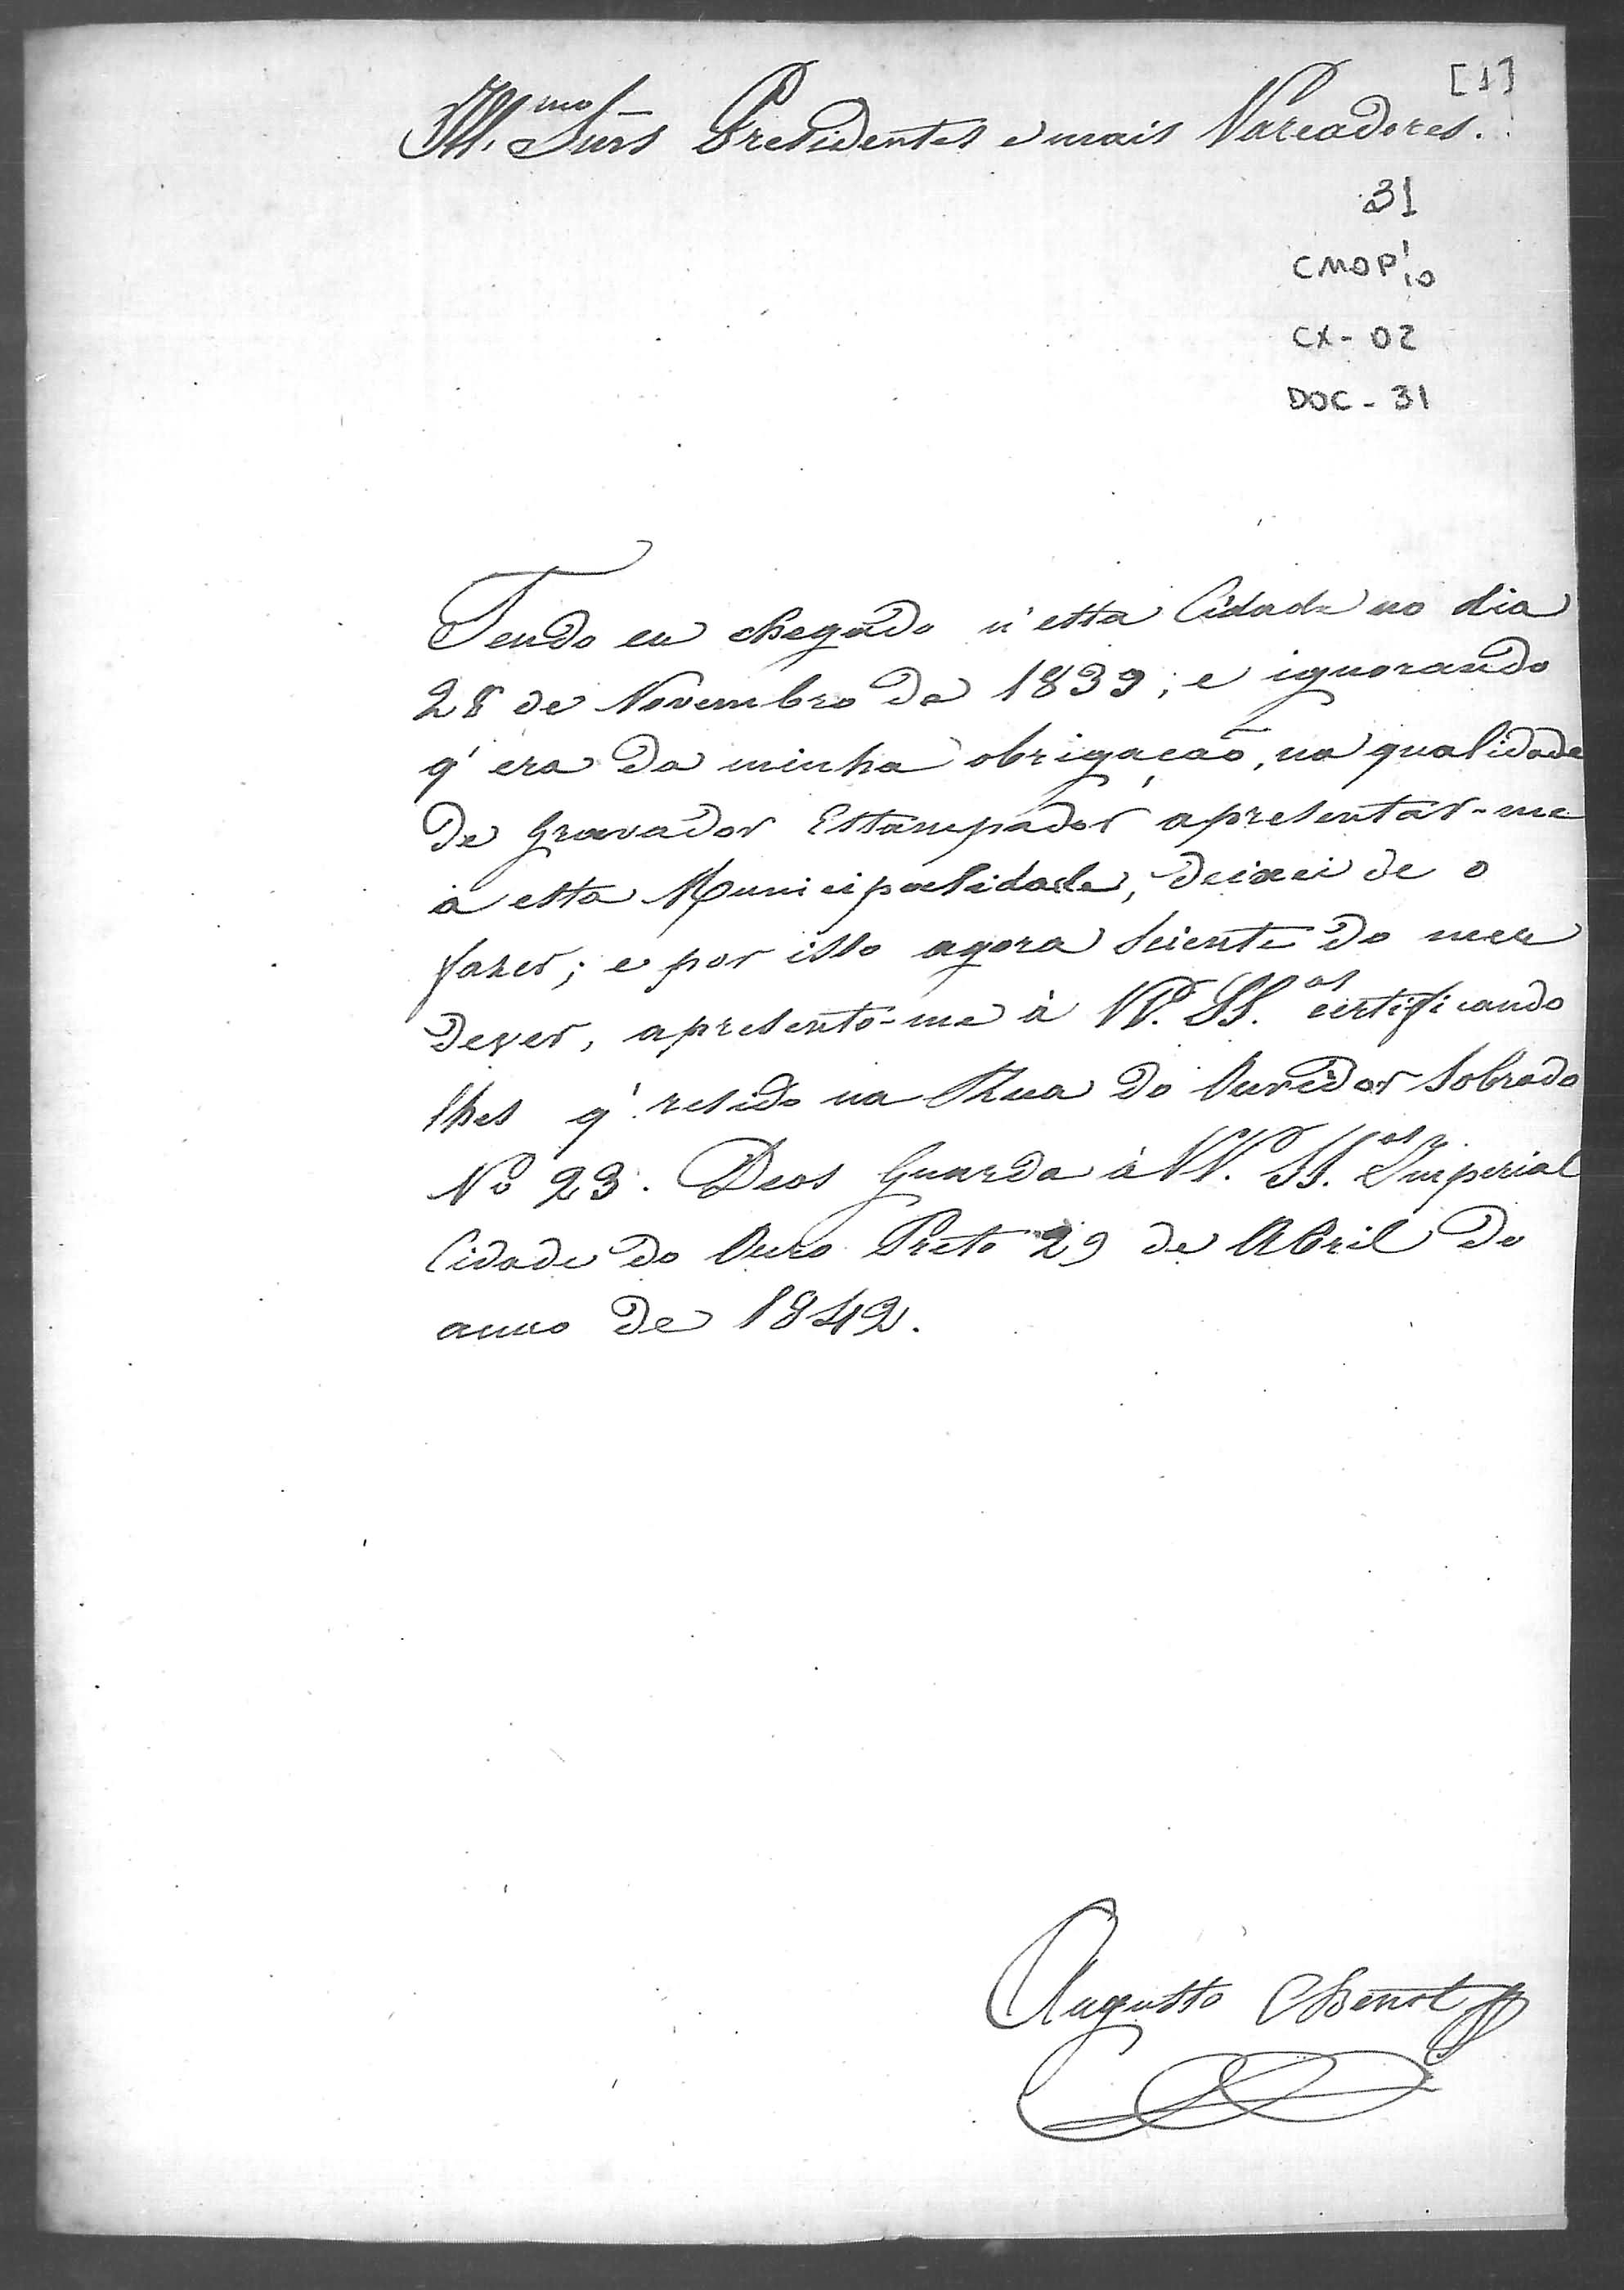 [1]
Ill.mos Snrs Presidentes e mais Vareadores.
31
CMOP 1/10
CX - 02
DOC - 31
Tendo eu chegado n'esta Cidade no dia
28 de Novembro de 1839; e ignorando
q' era da minha obrigação, na qualidade
de Gravador Estampador apresentar-me
a esta Municipalidade, deixei de o
fazer; e por isso agora sciente do meu
dever, apresento-me à VV. SS.as certificando
lhes q' resido na Rua do Ouvidor Sobrado
No 23. Deos Guarda à VV. SS.as Imperial
Cidade do Ouro Preto 29 de Abril do
anno de 1842.
Augusto